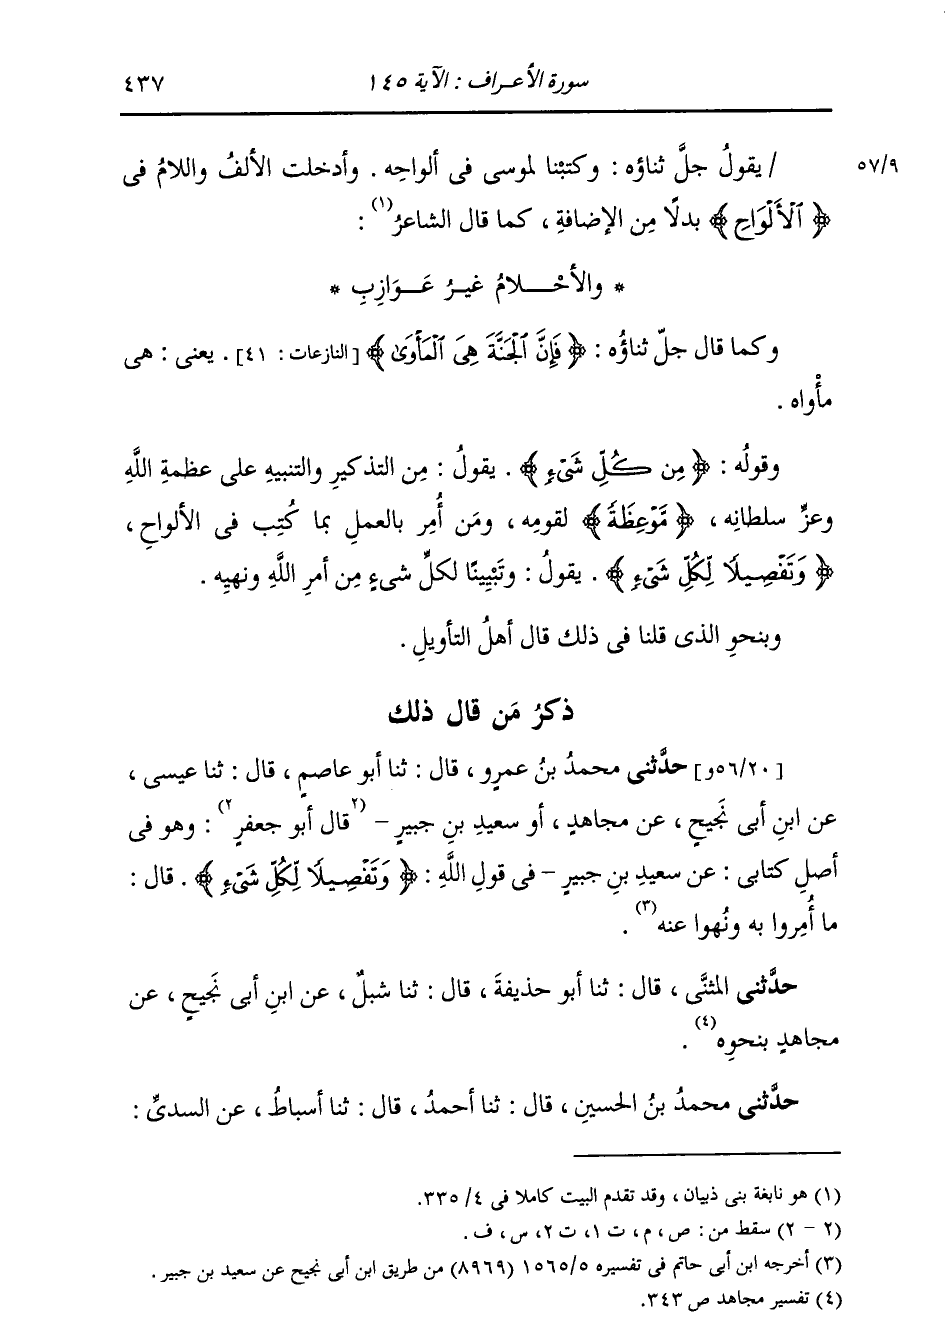 سورة الأعراف : الآية ١٤٥ ٤٣٧
٥٧/٩ / يقولُ جلَّ ثناؤه : وكتبْنا لموسى فى ألواحِه . وأدخلت الألفُ واللامُ فى
﴿ ٱلْأَلْوَاحِ ﴾ بدلًا مِن الإضافةِ ، كما قال الشاعرُ(١) :
* والأحْـــلامُ غيـرُ عَـوَازِبِ *
وكما قال جلّ ثناؤُه : ﴿ فَإِنَّ ٱلْجَنَّةَ هِىَ ٱلْمَأْوَىٰ ﴾ [ النازعات : ٤١] . يعنى : هى
مأْواه .
وقولُه : ﴿ مِن كُلِّ شَىْءٍ ﴾ . يقولُ : مِن التذكيرِ والتنبيهِ على عظمةِ اللَّهِ
وعزِّ سلطانِه ، ﴿ مَّوْعِظَةً ﴾ لقومِه ، ومَن أُمِر بالعملِ بما كُتِب فى الألواحِ ،
﴿ وَتَفْصِيلًا لِّكُلِّ شَىْءٍ ﴾ . يقولُ : وتَبْيِينًا لكلِّ شىءٍ مِن أمرِ اللَّهِ ونهيِه .
وبنحوِ الذى قلنا فى ذلك قال أهلُ التأويلِ .
ذكرُ مَن قال ذلك
[٥٦/٢٠و] حدَّثنى محمدُ بنُ عمرٍو ، قال : ثنا أبو عاصمٍ ، قال : ثنا عيسى ،
عن ابنِ أبى نَجيحٍ ، عن مجاهدٍ ، أو سعيدِ بنِ جبيرٍ – (٢قال أبو جعفرٍ٢) : وهو فى
أصلِ كتابى : عن سعيدِ بنِ جبيرٍ – فى قولِ اللَّهِ : ﴿ وَتَفْصِيلًا لِّكُلِّ شَىْءٍ ﴾ . قال :
ما أُمِروا به ونُهوا عنه(٣) .
حدَّثنى المثنَّى ، قال : ثنا أبو حذيفةَ ، قال : ثنا شبلٌ ، عن ابنِ أبى نَجيحٍ ، عن
مجاهدٍ بنحوِه(٤) .
حدَّثنى محمدُ بنُ الحسينِ ، قال : ثنا أحمدُ ، قال : ثنا أسباطُ ، عن السدىِّ :
(١) هو نابغة بنى ذبيان ، وقد تقدم البيت كاملا فى ٤/ ٣٣٥.
(٢ – ٢) سقط من : ص ، م ، ت ١، ت ٢، س ، ف .
(٣) أخرجه ابن أبى حاتم فى تفسيره ١٥٦٥/٥ (٨٩٦٩) من طريق ابن أبى نجيح عن سعيد بن جبير .
(٤) تفسير مجاهد ص ٣٤٣.